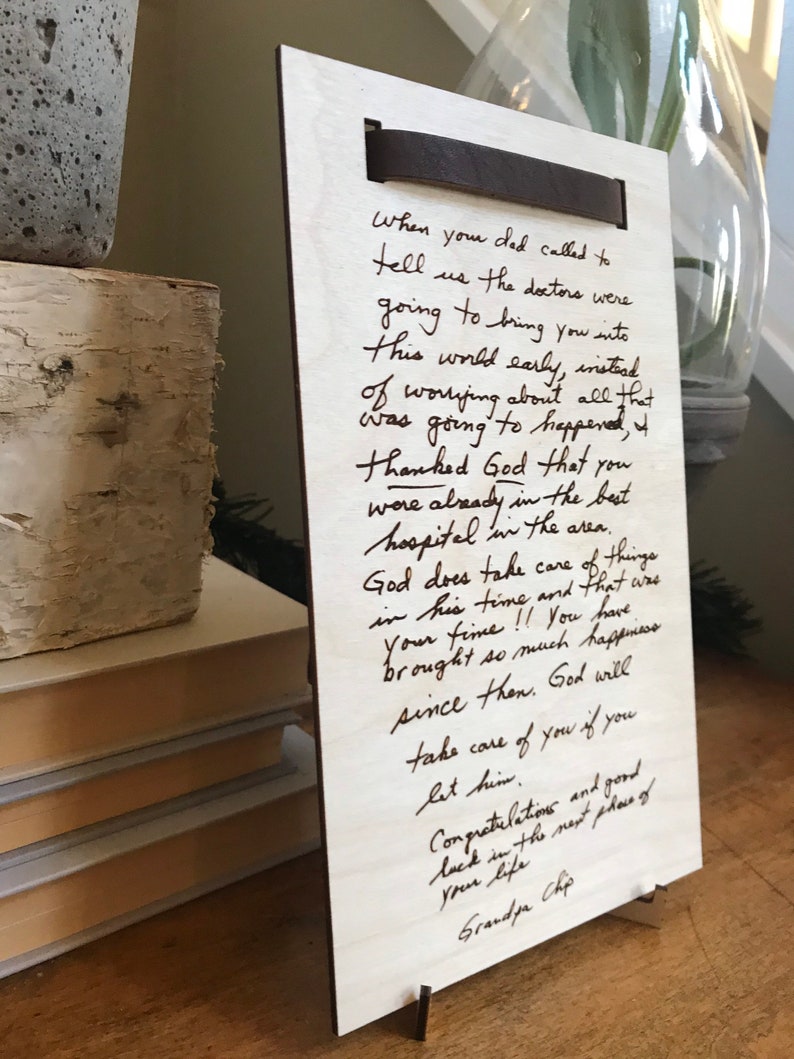 When your dad called to
tell us the doctors were
going to bring you into
this world early, instead
of worrying about all that
was going to happened, I
thanked God that you
were already in the best
hospital in the area.
God does take care of things
in his time and that was
your time !! You have
brought so much happiness
since then. God will
take care of you if you
let him.
Congratulations and good
luck in the next phase of
your life
Grandpa Chip